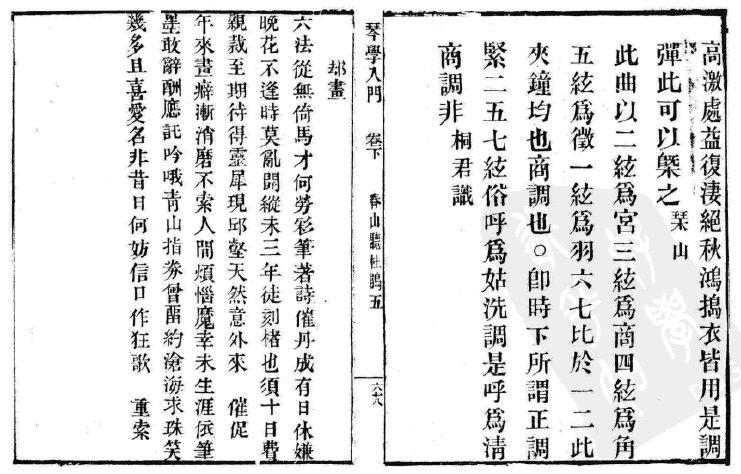 高激處益復淒絕秋鴻搗衣皆用是調
彈此可以槩之 琹山
此曲以二絃爲宮三絃爲商四絃爲角
五絃爲徵一絃爲羽六七比於一二此
夾鐘均也商調也○卽時下所謂正調
緊二五七絃俗呼爲姑洗調是呼爲清
商調非 桐君識
琴學入門 卷下 春山聽杜鵑 五
六十八
却畫
六法從無倚馬才何勞彩筆著詩催丹成有日休嫌
晚花不逢時莫亂開縱未三年徒刻楮也須十日費
親裁至期待得靈犀現邱壑天然意外來 催促
年來畫癖漸消磨不索人間煩惱魔幸未生涯依筆
墨敢辭酬應託吟哦靑山指券曾畱約滄海求珠笑
幾多且喜愛名非昔日何妨信口作狂歌 重索